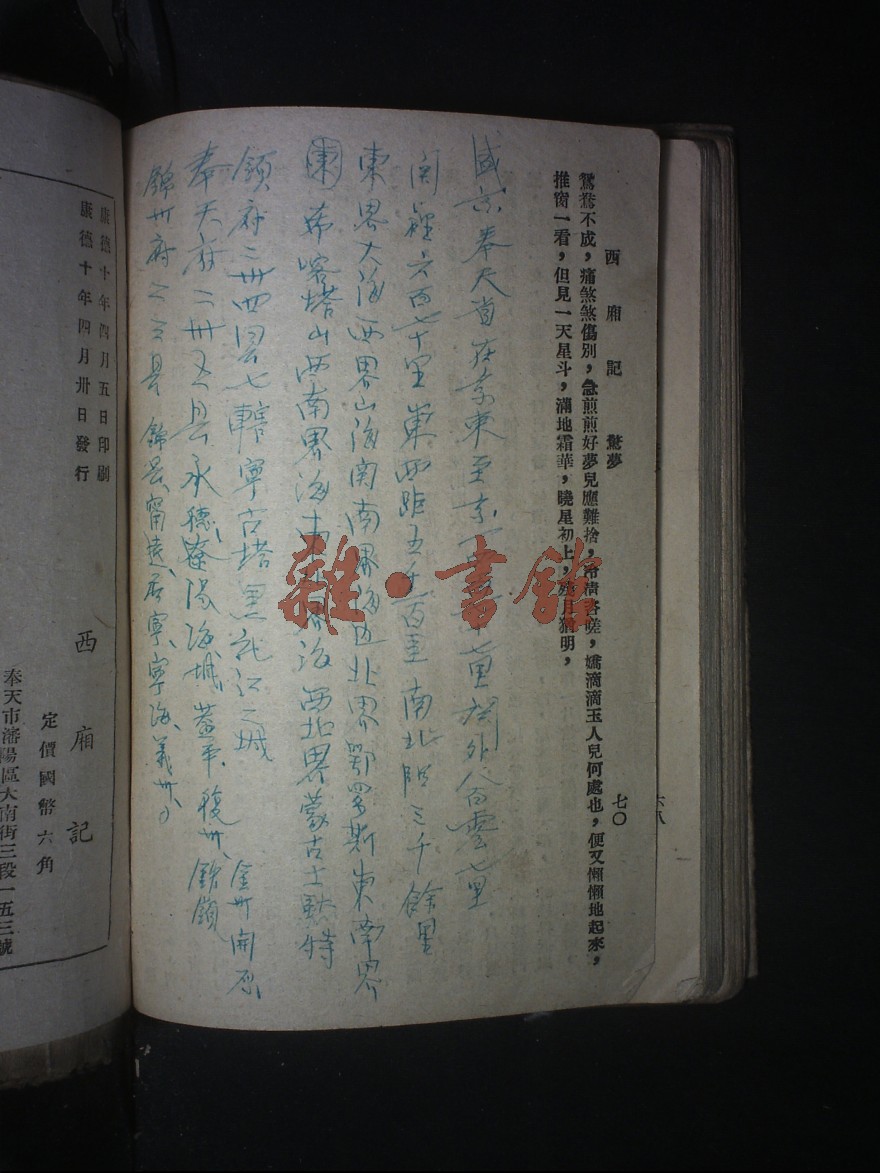 西廂記　驚夢　七〇
鴛鴦不成，痛煞煞傷別，急煎煎好夢兒應難捨，冷清清咨嗟，嬌滴滴玉人兒何處也，便又懶懶地起來，
推窗一看，但見一天星斗，滿地霜華，曉星初上，殘月猶明，
盛京奉天省在京東至京一千七百里關外八百零七里
関裡六百七十里東西距五千一百里南北距三千餘里
東界大海西界山海関南界海北界鄂罗斯東南界
東希喀塔山西南界海東北界海西北界蒙古土默特
領府二卅四县七轄寧古塔黑龍江之城
奉天府二卅五县承德、遼陽、海城、蓋平、復卅、鉄嶺
金卅開原、
錦卅府二三县錦县、甯遠、居寧、寧海、義卅、
康德十年四月五日印刷
康德十年四月卅日發行
西廂記
定價國幣六角
奉天市瀋陽區大南街三段一五三號
六八
雜·書館